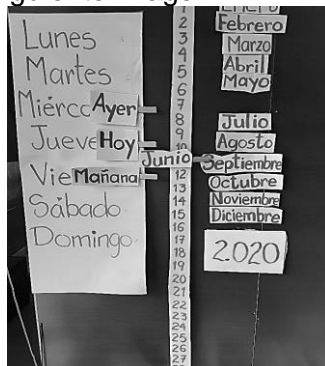 Lunes
Martes
Miércc Ayer
Jueve Hoy
Vie Mañana
Sábado
Domingo
2
3
4
5
6
7
8
9
10
Junio
12
13
14
15
16
17
18
19
20
21
22
23
24
25
26
27
Enero
Febrero
Marzo
Abril
Mayo
Julio
Agosto
Septiembre
Octubre
Noviembre
Diciembre
2.020